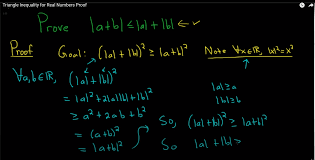 Triangle Inequality for Real Numbers Proof
Prove |a+b| ≤ |a|+|b| ←✓
Proof Goal: (|a|+|b|)² ≥ |a+b|² Note ∀x∈ℝ, |x|²=x²
∀a,b∈ℝ, (|a|+|b|)²
= |a|²+2|a||b|+|b|²
≥ a²+2ab+b²
= (a+b)²
= |a+b|²
|a| ≥ a
|b| ≥ b
So, (|a|+|b|)² ≥ |a+b|²
So |a|+|b| ≥